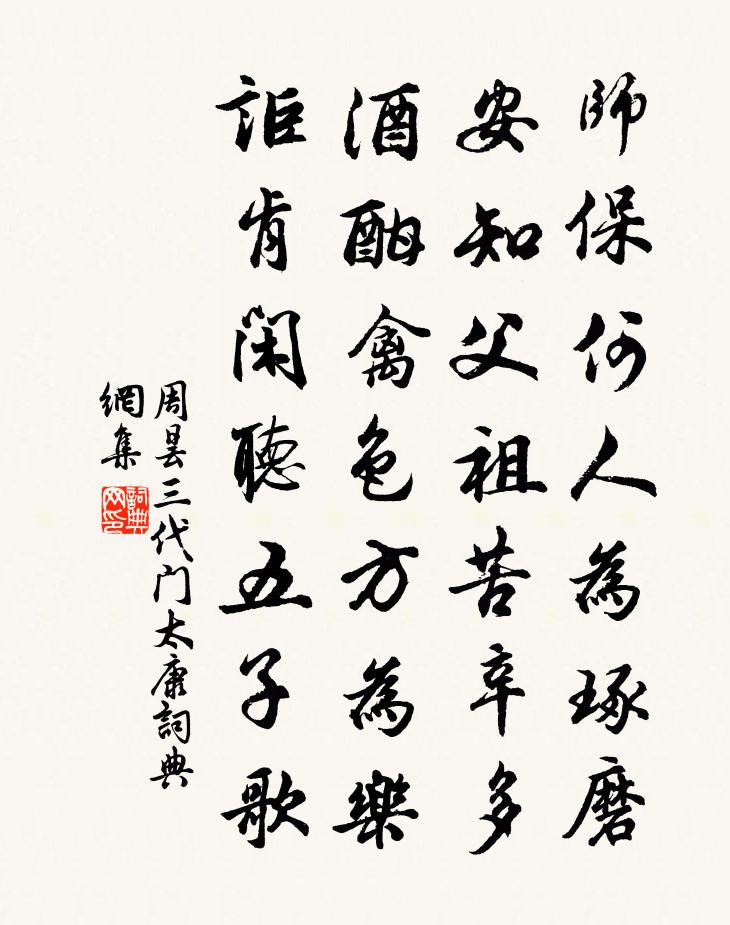 師保何人為琢磨
安知父祖苦辛多
酒酣禽色方為樂
詎肯閑聽五子歌
周曇三代门太康詞典
網集
詞典
网印